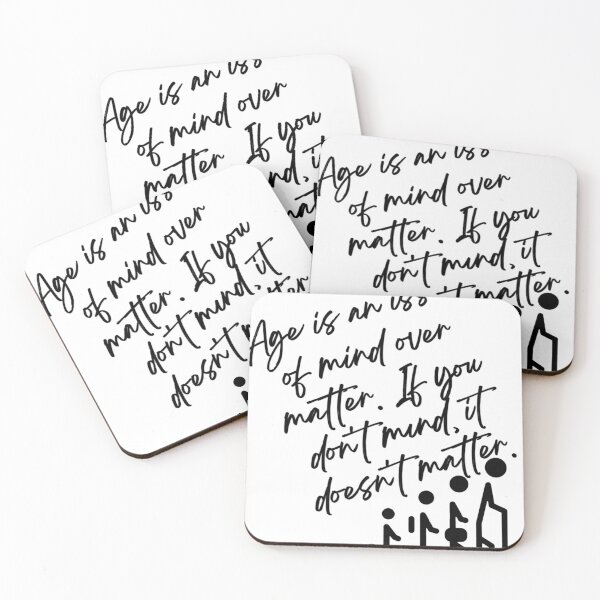 Age is an
of mind over
matter. If you
it
Age is an
of mind over
matter. If you
don't mind, it
matter.
Age is an
of mind over
matter. If you
don't mind, it
doesn't matter
Age is an
of mind over
matter. If you
don't mind, it
doesn't matter.